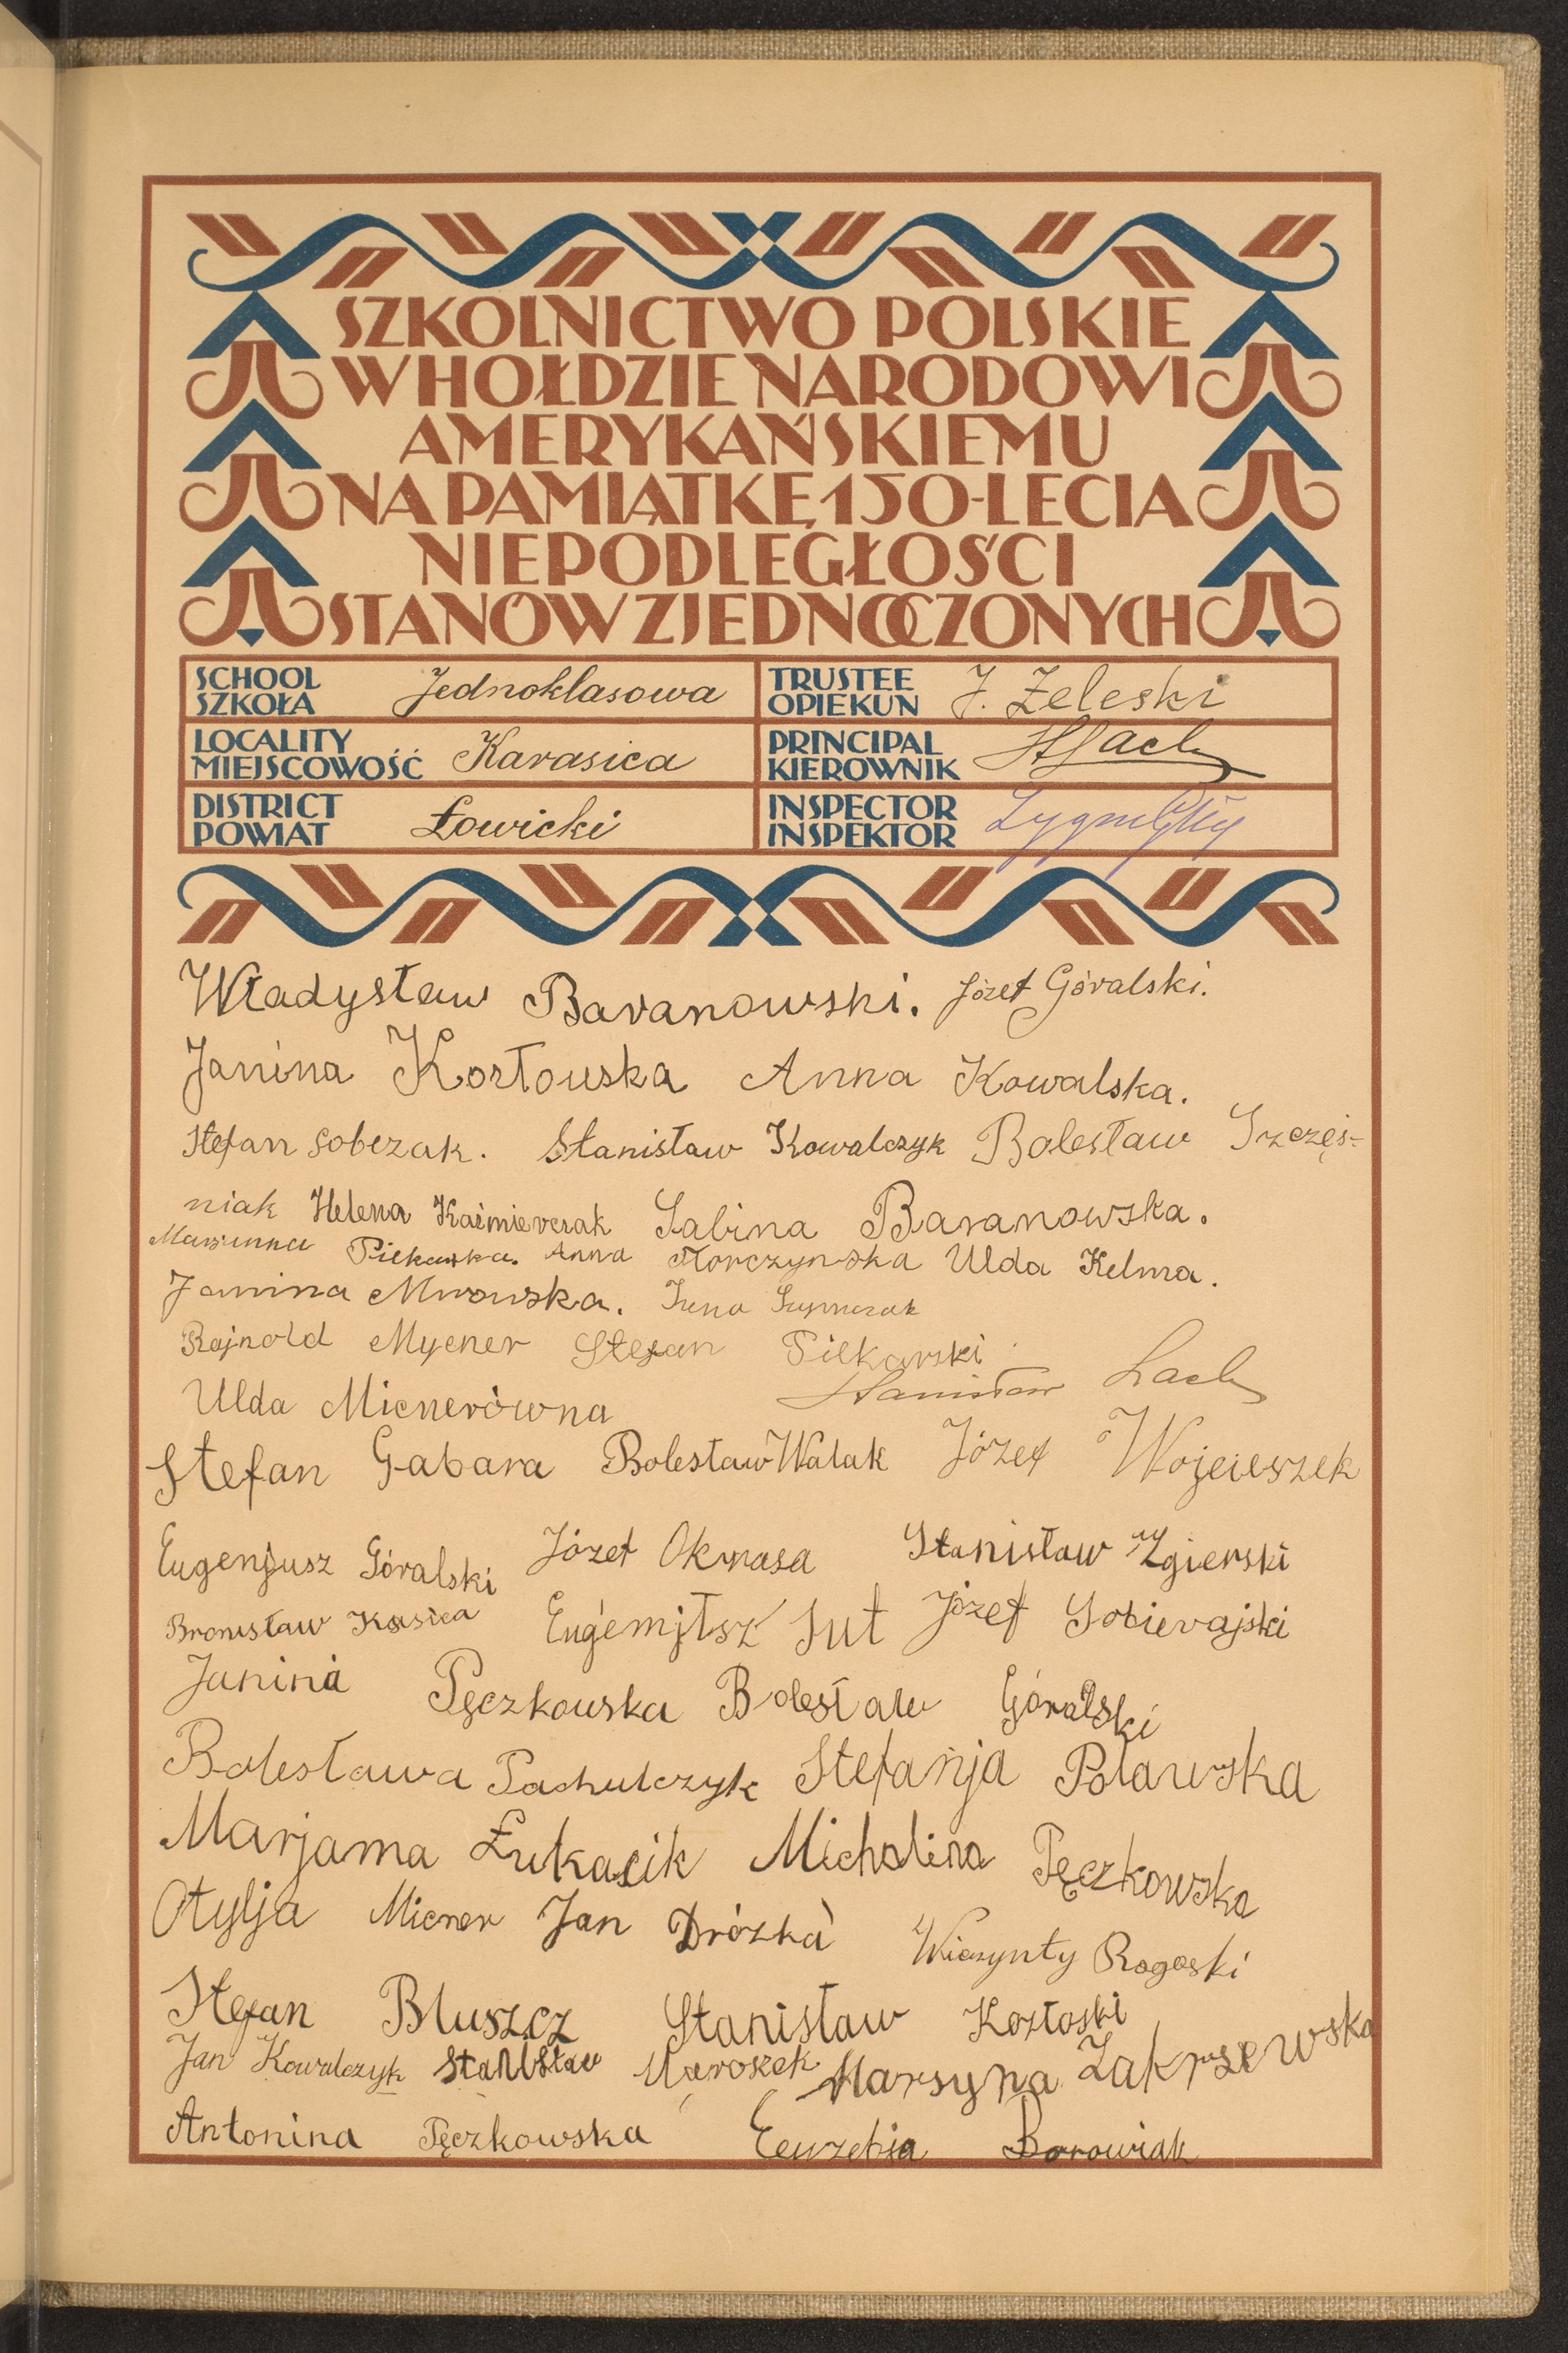 SZKOLNICTWO POLSKIE
W HOŁDZIE NARODOWI
AMERYKAŃSKIEMU
NA PAMIĄTKĘ 150-LECIA
NIEPODLEGŁOŚCI
STANÓW ZJEDNOCZONYCH
SCHOOL SZKOŁA Jednoklasowa
TRUSTEE OPIEKUN J. Żeleski
LOCALITY MIEJSCOWOŚĆ Karasica
PRINCIPAL KIEROWNIK StLach
DISTRICT POWIAT Łowicki
INSPECTOR INSPEKTOR
Władysław Baranowski. Józef Góralski.
Janina Kozłouska Anna Kowalska.
Stefan Sobczak. Stanisław Kowalczyk Bolesław Szczęś-
niak Helena Kaźmierczak Sabina Baranowska.
Marianna Piekarska. Anna Morczynska Ulda Kelma.
Janina Mrowska. Irena
Rajnold Mycner Stefan Piekarski
Stanisław Lach
Ulda Micnerówna
Stefan Gabara Bolesław Walak Józef Wojcieszek
Eugenjusz Góralski Józef Okrasa Stanisław Zgierski
Bronisław Kasica Eugemjusz Sut Józef Sobierajski
Janina Pęczkouska Bolesław Góralski
Bolesława Pachulczyk Stefanja Polawska
Marjama Łukasik Michalina Pęczkowska
Otylja Micner Jan Drózka Wiczynty Rogoski
Stefan Bluszcz Stanisław Kozłoski
Jan Kowalczyk Stanisław Maroszek Marsyna Zakrzewska
Antonina Pęczkowska Eeuzebja Borowiak